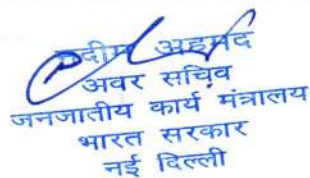 अहमद
अवर सचिव
जनजातीय कार्य मंत्रालय
भारत सरकार
नई दिल्ली